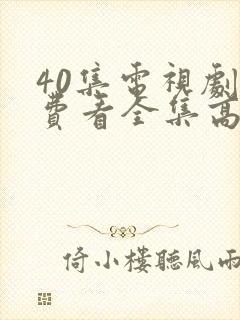 40集電視劇
費看全集高
倚小樓聽風雨